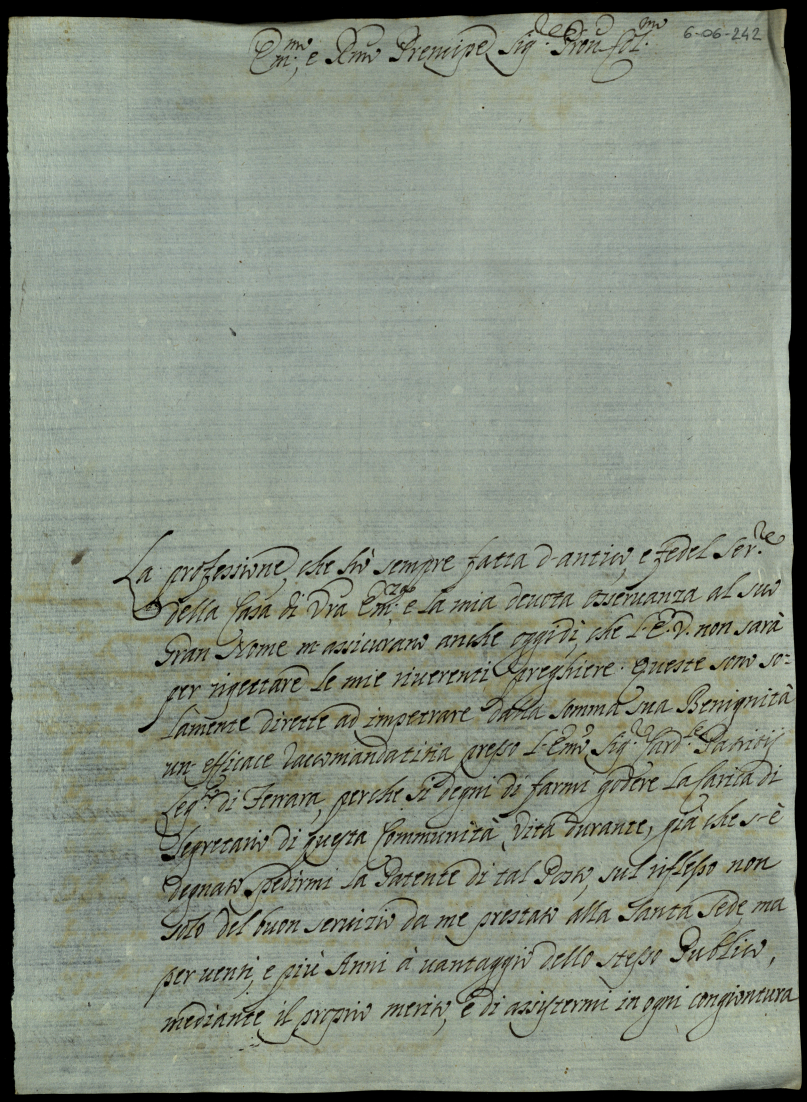 6-06-242
Em.mo, e Rmo Prencipe Sig.re Pron Col.mo
La professione, che hò sempre fatta d'antico, e fedel Ser.re
della Casa di Vra Em.za, e la mia devota osservanza al suo
Gran Nome m'assicurano anche oggidì, che l'E. V. non sarà
per rigettare le mie riverenti preghiere. Queste sono so=
lamente dirette ad impetrare dalla somma sua Benignità
un' efficace raccomandatitia presso l'Emo Sig.r Card.le Patritij
Leg.to di Ferrara, perche si degni di farmi godere la Carica di
Segretario di questa Communità, vita durante, già che s'è
degnato spedirmi la Patente di tal Posto, sul riflesso non
solo del buon servizio da me prestato alla Santa Sede, ma
per venti, e più Anni à vantaggio dello stesso Publico,
mediante il proprio merito, e di assistermi in ogni congiontura